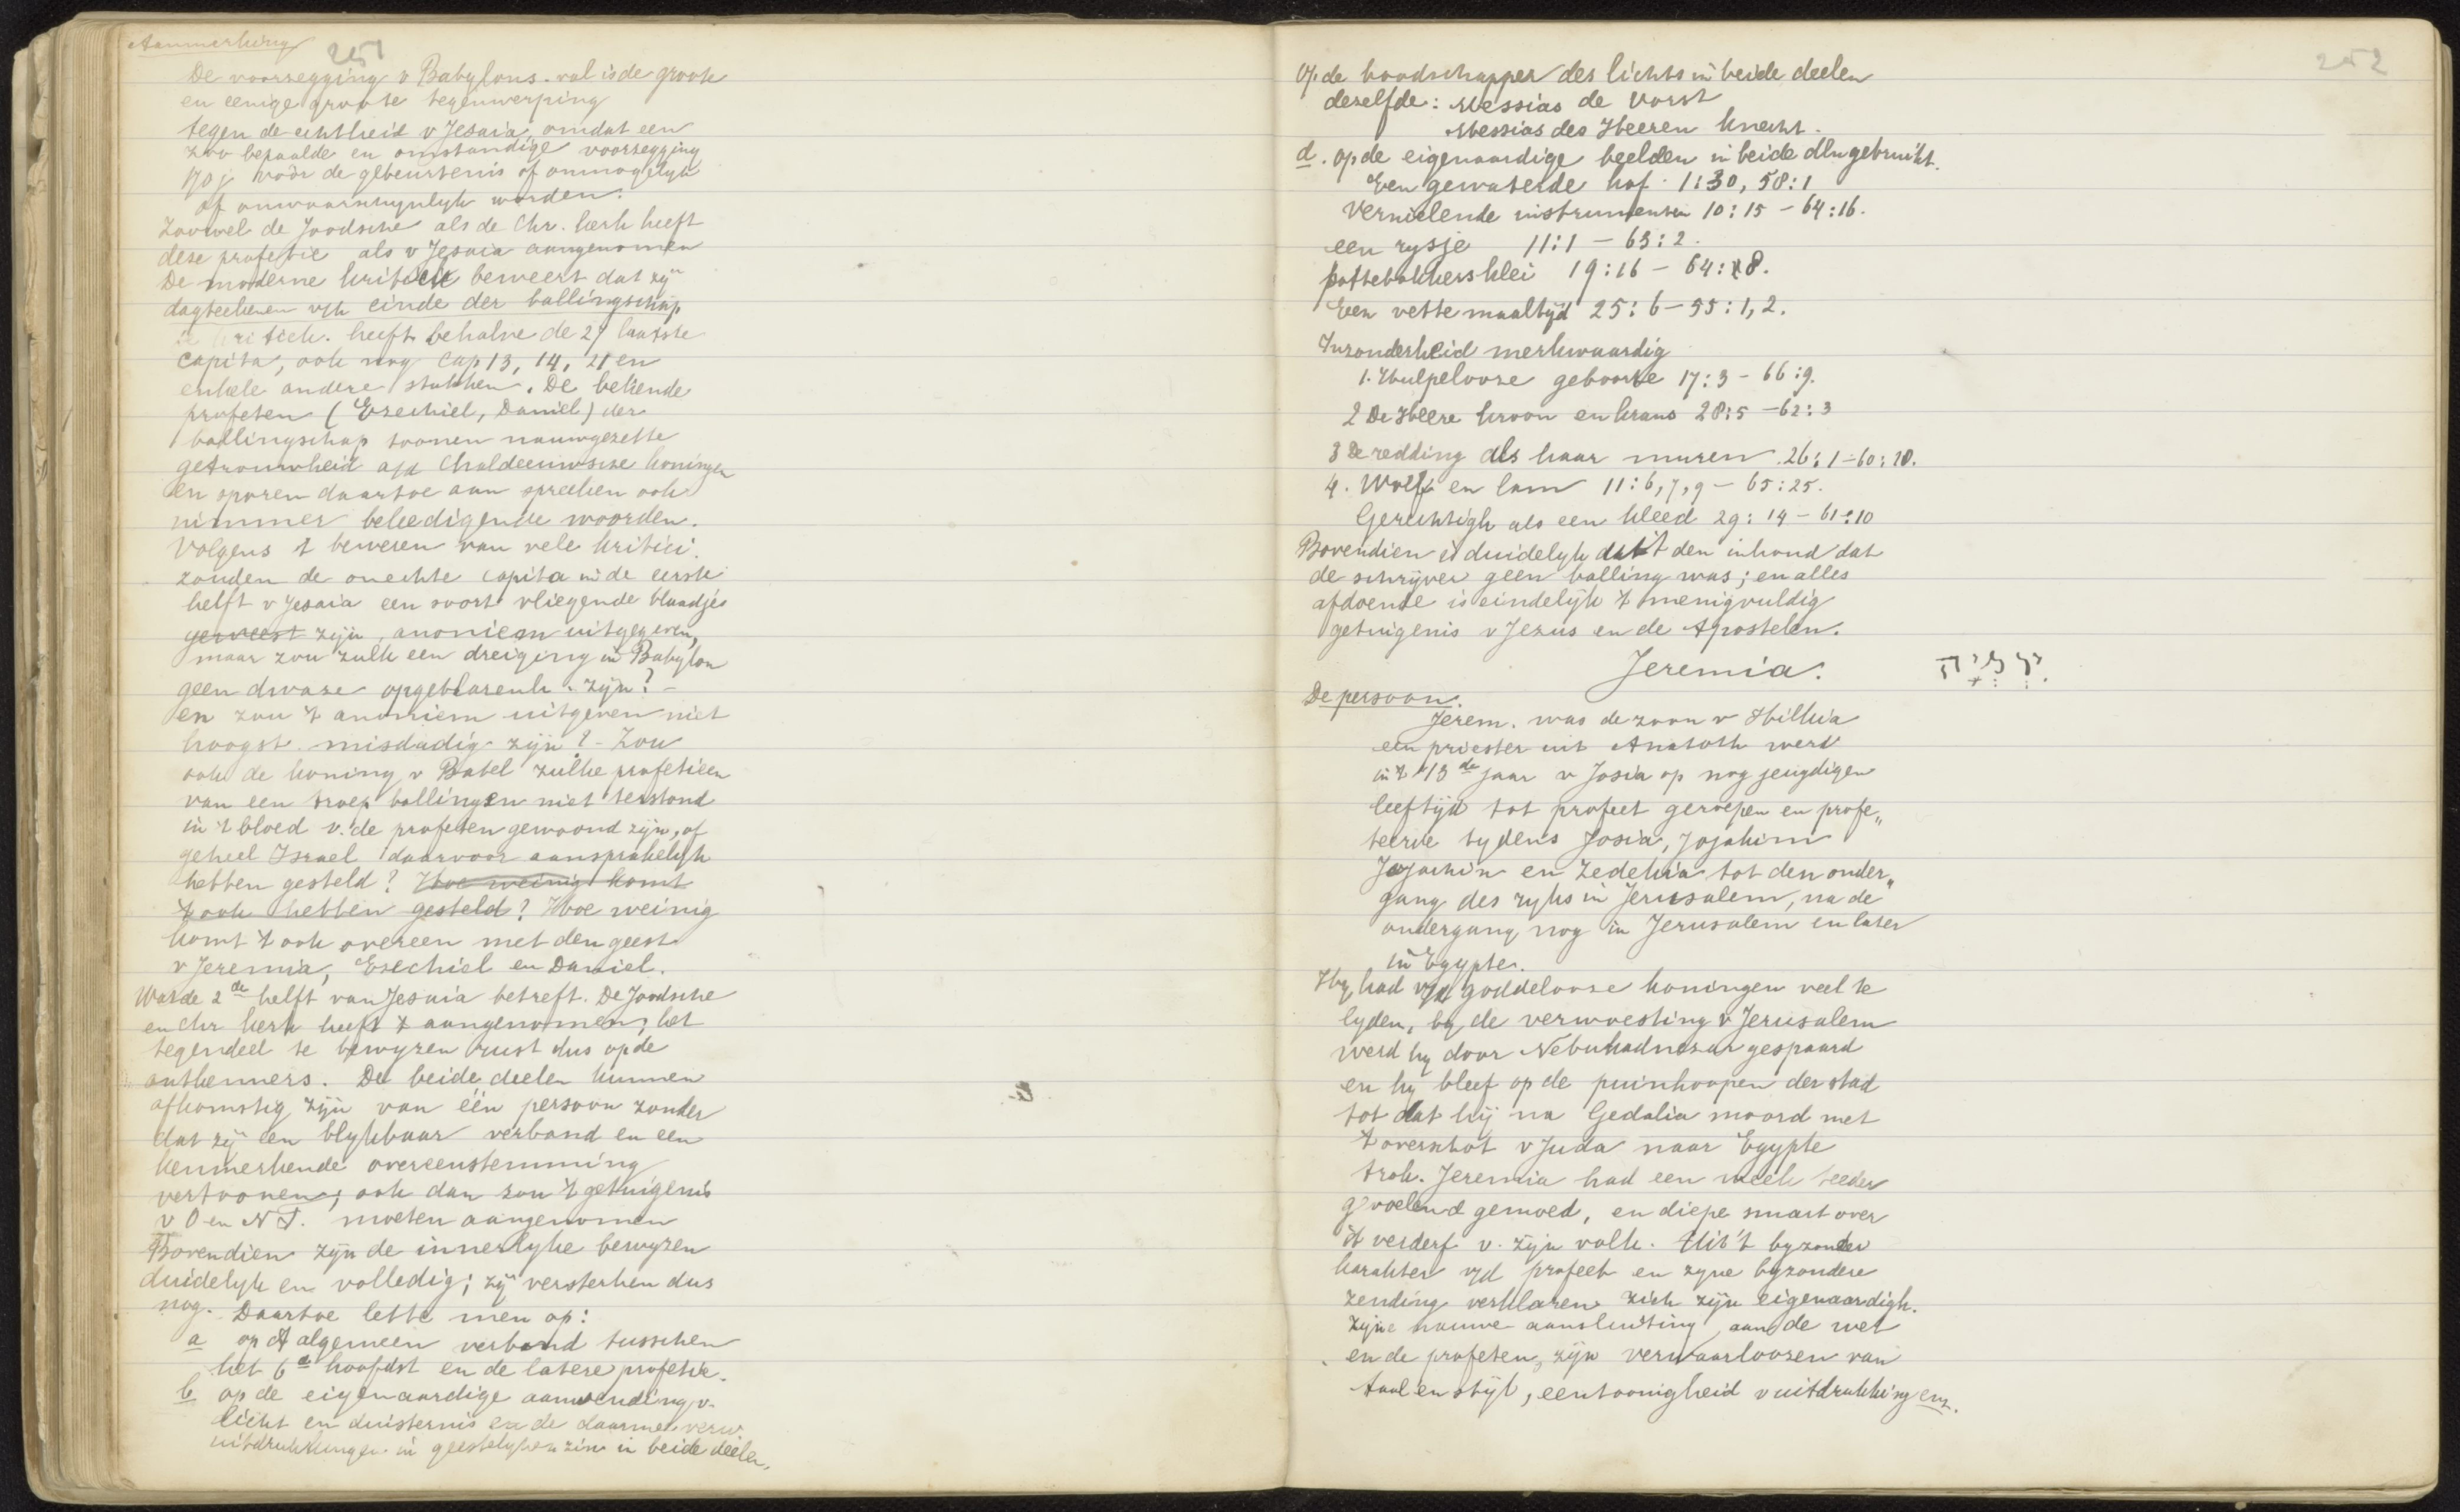 Aanmerking
251
De voorzegging v Babylons. val is de groote
en eenige groote tegenwerping
tegen de echtheid v Jesaia, omdat een
zoo bepaalde en omstandige voorzegging
170 j vóór de gebeurtenis of onmogelyk
of onwaarschynlyk worden.
Zoowel de Joodsche als de Chr. kerk heeft
deze profetie als v Jesaia aangenomen
De moderne kritiek beweert dat zy
dagteekenen v/h einde der ballingschap
de kritiek. heeft behalve de 27 laatste
capita, ook nog Cap 13, 14, 21 en
enkele andere stukken. De bekende
profeten (Ezechiel, Daniel) der
ballingschap toonen nauwgezette
getrouwheid a/d Chaldeeuwsche koningen
en sporen daartoe aan spreken ook
nimmer beleedigende woorden.
Volgens 't beweren van vele kritici.
zouden de onechte capita in de eerste
helft v Jesaia een soort vliegende blaadjes
geweest zijn, anoniem uitgegeven,
maar zou zulk een dreiging in Babylon
geen dwaze opgeblazenh. zijn? -
en zou 't anoniem uitgeven niet
hoogst misdadig zijn? - Zou
ook de koning v Babel zulke profetieen
van een troep ballingen niet terstond
in 't bloed v. de profeten gewoond zijn, of
geheel Israel daarvoor aansprakelijk
hebben gesteld? Hoe weinig komt
't ook hebben gesteld? Hoe weinig
komt 't ook overeen met den geest
v Jeremia, Ezechiel en Daniel.
Wat de 2de helft van Jesaia betreft. De Joodsche
en Chr kerk heeft 't aangenomen; het
tegendeel te bewyzen rust dus op de
ontkenners. De beide deelen kunnen
afkomstig zijn van één persoon zonder
dat zij een blykbaar verband en een
kenmerkende overeenstemming
vertoonen; ook dan zou 't getuigenis
v O en N T. moeten aangenomen
Bovendien zijn de innerlyke bewyzen
duidelyk en volledig; zij versterken dus
nog. Daartoe lette men op:
a op 't algemeen verband tusschen
het 6e hoofdst en de latere profetie.
b op de eigenaardige aanwending v.
licht en duisternis en de daarmee verw.
uitdrukkingen in geestelyken zin in beide deelen.
252
op de boodschapper des lichts in beide deelen
dezelfde: Messias de Vorst
Messias des Heeren knecht.
d. op de eigenaardige beelden in beide dln gebruikt.
Een gewaterde hof. 1:30, 58:1
Vernielende instrumenten 10:15 - 64:16.
een rysje 11:1 - 63:2.
pottebakkersklei 19:16 - 64:8.
Een vette maaltijd 25:6 - 55:1,2.
Inzonderheid merkwaardig
1. Hulpelooze geboorte 17:3 - 66:9.
2 De Heere kroon en krans 28:5 - 62:3
3 De redding als haar muren. 26:1 - 60:10.
4. Wolf en lam 11:6,7,9 - 65:25.
Gerechtigh als een kleed 29:14 - 61:10
Bovendien is duidelyk uit den inhoud dat
de schrijver geen balling was; en alles
afdoende is eindelijk 't menigvuldig
getuigenis v Jezus en de Apostelen.
Jeremia.
De persoon.
Jerem. was de zoon v Hilkia
een priester uit Anatoth werd
in 't 13de jaar v Josia op nog jeugdigen
leeftijd tot profeet geroepen en profe„
teerde tydens Josia, Jojakim
Jojachin en Zedekia tot den onder„
gang des ryks in Jerusalem, na de
ondergang nog in Jerusalem en later
in Egypte.
Hy had v/d goddelooze koningen veel te
lyden, by de verwoesting v Jerusalem
werd hy door Nebukadnezar gespaard
en hy bleef op de puinhoopen der stad
tot dat hij na Gedalia moord met
't overschot v Juda naar Egypte
trok. Jeremia had een week teeder
gevoelend gemoed, en diepe smart over
't verderf v. zijn volk. Uit 't byzonder
karakter v/d profeet en zyne byzondere
zending verklaren zich zijn eigenaardigh.
zijne nauwe aansluiting aan de wet
en de profeten, zijn verwaarloozen van
taal en stijl, eentoonigheid v uitdrukking enz.